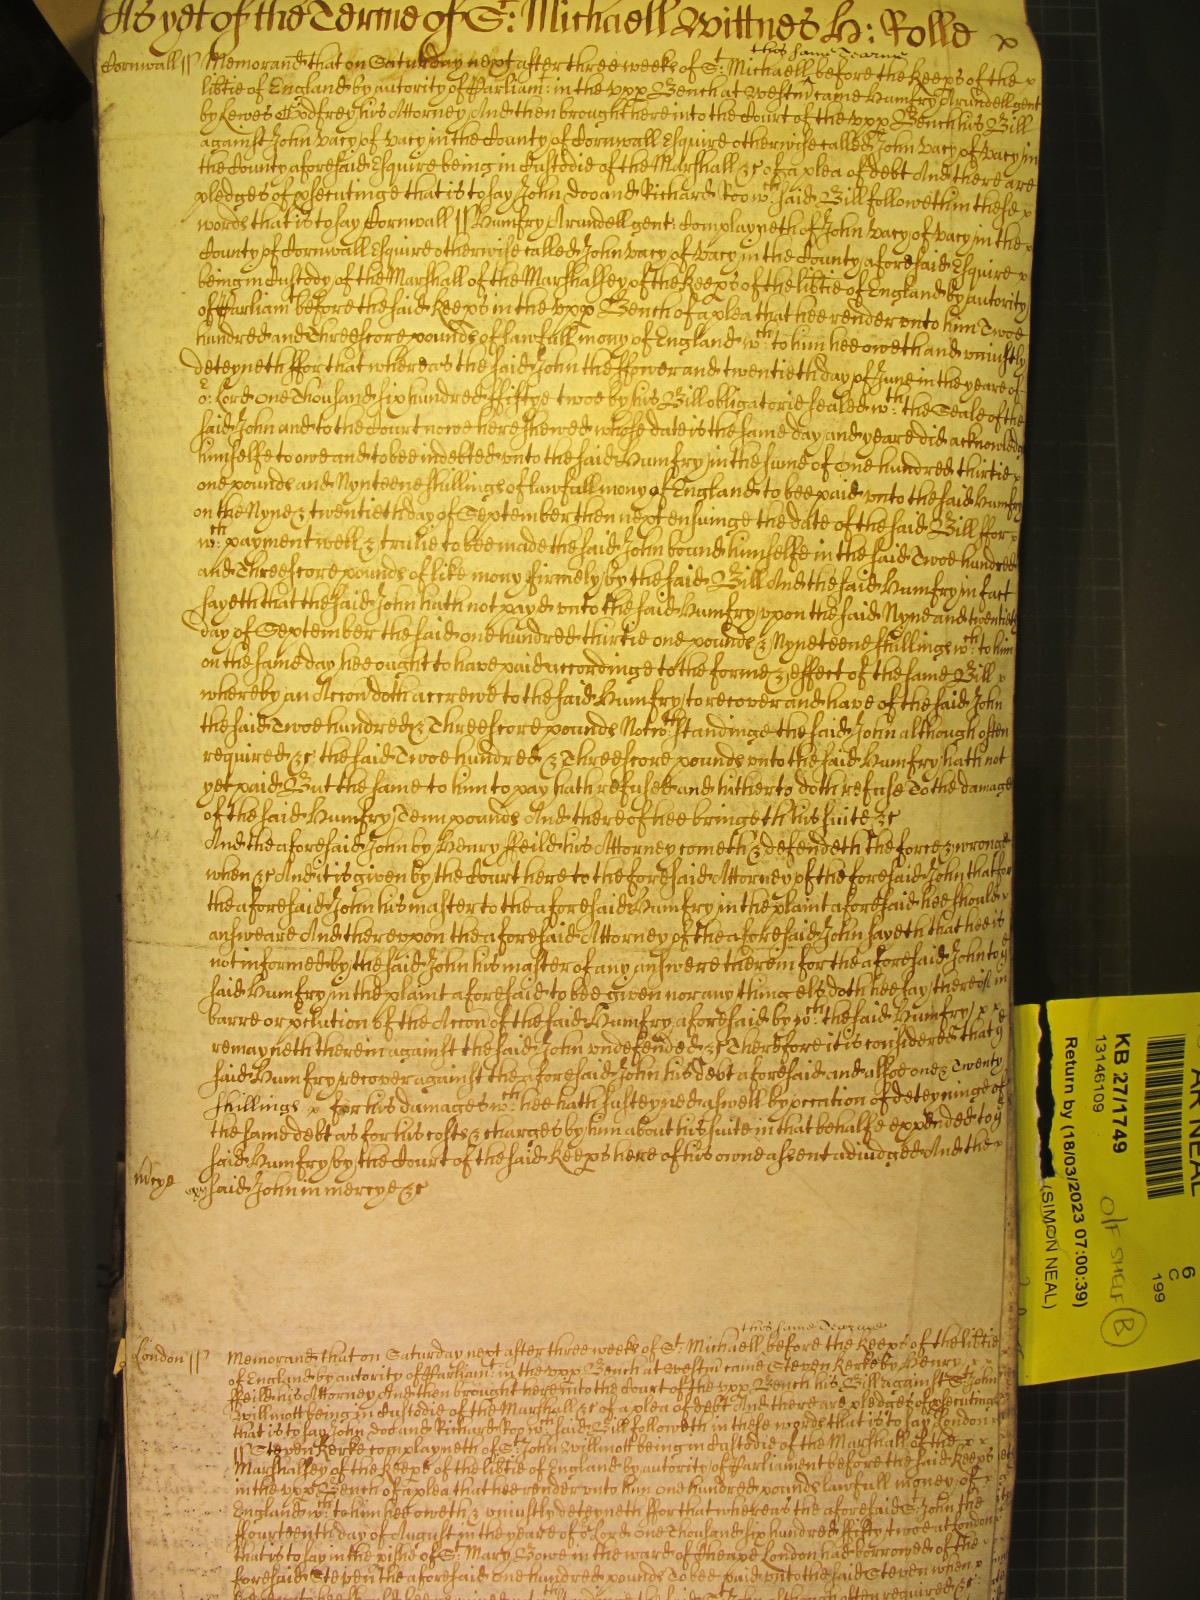 As yet of the Terme of St: Michaell Wittnes H: Rolle
this same Tearme
Cornwall ss Memorand that on Saturday next after three weeks of St: Michaell before the Keeps of the
libtie of England by autority of Parliamt: in the vpp Bench at Westm came Humfry Arundell gent
by Lewes Godfrey his Attorney And then brought here into the Court of the vpp Bench his Bill
against John Vacy of Vacy in the County of Cornwall Esquire otherwise called John Vacy of Vacy in
the County aforesaid Esquire being in Custodie of the Marshall &c of a plea of debt And there are
pledges of psecutinge that is to say John Doo and Richard Roo wch: said Bill followeth in these
words that is to say Cornwall ss Humfry Arundell gent: Complayneth of John Vacy of Vacy in the
County of Cornwall Esquire otherwise called John Vacy of Vacy in the County aforesaid Esquire
being in Custody of the Marshall of the Marshallsey of the Keeps of the libtie of England by autority
of Parliamt before the said Keeps in the vpp Bench of a plea that hee render vnto him Twoe
hundred and Threescore pounds of lawfull mony of England wch: to him hee oweth and vniustly
deteyneth ffor that whereas the said John the ffower and twentieth day of June in the yeare of
or: Lord One Thousand six hundred ffiftye twoe by his Bill obligatorie sealed wth: the Seale of the
said John and to the Court nowe here shewed whose date is the same day and yeare did acknowledg
himselfe to owe and to bee indebted vnto the said Humfry in the sume of One hundred thirtie
one pounds and Nynteene shillings of lawfull mony of England to bee paid vnto the said Humfry
on the Nyne & twentieth day of September then next ensuinge the date of the said Bill ffor
wch: payment well & trulie to bee made the said John bound himselfe in the said Twoe hundred
and Threescore pounds of like mony firmely by the said Bill And the said Humfry in fact
sayeth that the said John hath not payd vnto the said Humfry vpon the said Nyne and twentieth
day of September the said one hundred thirtie one pounds & Nyneteene shillings wch: to him
on the same day hee ought to have paid accordinge to the forme & effect of the same Bill
whereby an Accon doth accrewe to the said Humfry to recover and have of the said John
the said Twoe hundred & Threescore pounds Notwthstandinge the said John although often
required &c the said Twoe hundred & Threescore pounds vnto the said Humfry hath not
yet paid But the same to him to pay hath refused and hitherto doth refuse To the damage
of the said Humfry Tenn pounds And thereof hee bringeth his suite &c
And the aforesaid John by Henry ffeild his Attorney cometh & defendeth the force & wronge
when &c And it is given by the Court here to the foresaid Attorney of the foresaid John that for
the aforesaid John his master to the aforesaid Humfry in the plaint aforesaid hee should
answeare And therevpon the aforesaid Attorney of the aforesaid John sayeth that hee is
not informed by the said John his master of any answere therein for the aforesaid John to ye
said Humfry in the plaint aforesaid to bee given nor any thing els doth hee say thereof in
barre or pclution of the Accon of the said Humfry aforesaid by wch the said Humfry
remayneth therein against the said John vndefended &c Therefore it is considered that ye
said Humfry recover against the aforesaid John his Debt aforesaid and allsoe one & Twenty
shillings for his damages wch: hee hath susteyned aswell by occation of deteyninge of
the same debt as for his costs & charges by him about his suite in that behalfe expended to ye
said Humfry by the Court of the said Keeps here of his owne assent adiudged And the
Mcye said John in mercye &c
this same Tearme
London ss Memorand that on Saturday next after three weeks of St: Michaell before the Keeps of the libtie
of England by autority of Parliamt: in the vpp Bench at Westm came Steven Kerke by Henry
ffeild his Attorney And then brought here into the Court of the vpp Bench his Bill against Sr John
Willmott being in Custodie of the Marshall &c of a plea of debt And there are pledges of psecutinge
that is to say John Doo and Richard Roo wch said Bill followeth in these words that is to say London
ss Steven Kerke complayneth of Sr: John Willmott being in Custodie of the Marshall of the
Marshallsey of the Keeps of the libtie of England by autority of Parliament before the said Keeps
in the vpp Bench of a plea that hee render vnto him one hundred pounds lawfull money of
England wch: to him hee oweth & vniustly deteyneth ffor that whereas the aforesaid Sr John the
ffourteenth day of August in the yeare of or Lord One Thousand six hundred ffifty twoe at London
that is to say in the pishe of St: Mary Bowe in the ward of Cheape London had borrowed of the
foresaid Steven the aforesaid One hundred pounds To bee paid vnto the said Steven when
KB 27/1749
13146109
Return by (18/03/2023 07:00:39)
(SIMON NEAL)
O/F SHELF B
6
C
199